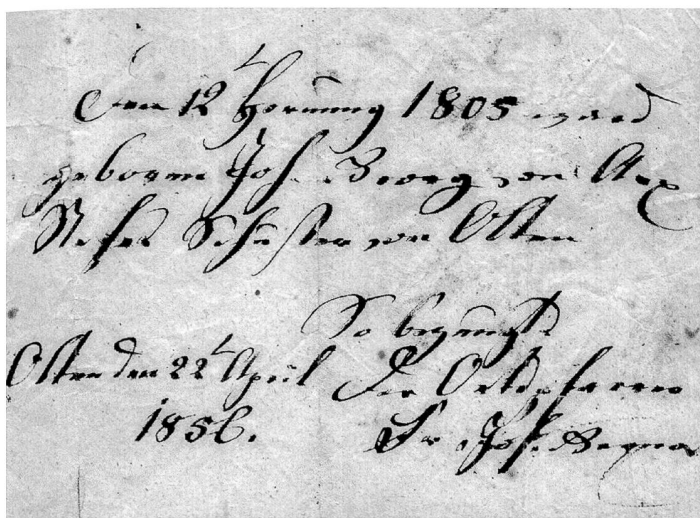 Den 12t Hornung 1805 ward
geboren Jos. Georg von Arx
Schuster von Olten
So bezeugts
Olten den 22t April Der Ortspfarrer
1856. Jos.